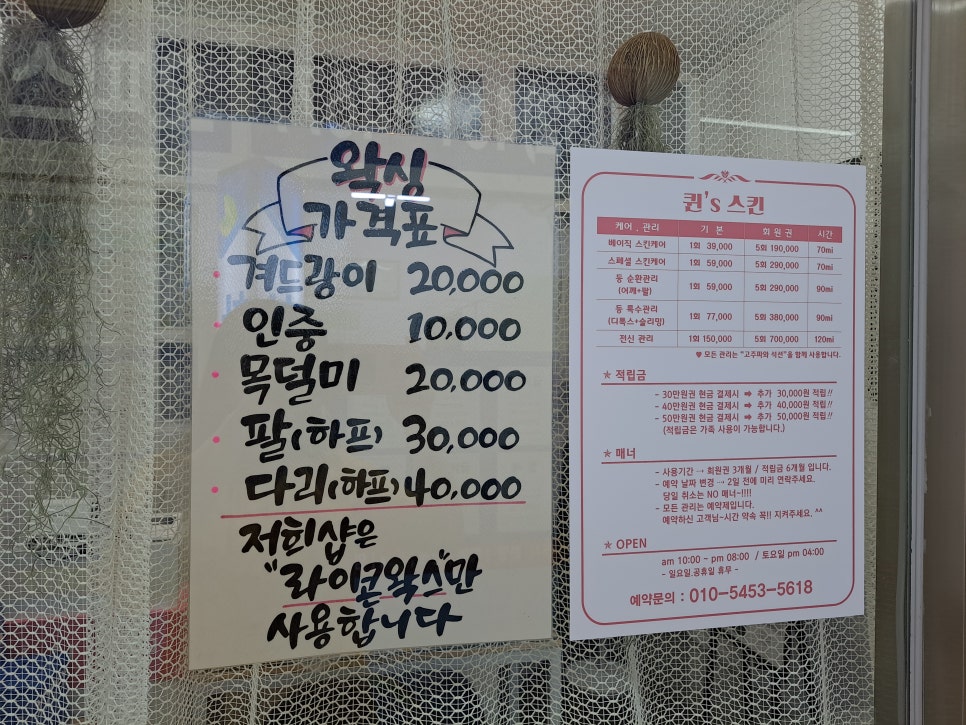 왁싱
가격표
· 겨드랑이 20,000
· 인중 10,000
· 목덜미 20,000
· 팔(하프) 30,000
· 다리(하프) 40,000
저희샵은
"라이콘왁스"만
사용합니다
퀸's 스킨
케어 . 관리 기 본 회 원 권 시간
베이직 스킨케어 1회 39,000 5회 190,000 70mi
스페셜 스킨케어 1회 59,000 5회 290,000 70mi
등 순환관리
(어깨+팔) 1회 59,000 5회 290,000 90mi
등 특수관리
(디톡스+슬리밍) 1회 77,000 5회 380,000 90mi
전신 관리 1회 150,000 5회 700,000 120mi
♥ 모든 관리는 "고주파와 석션"을 함께 사용합니다.
★ 적립금
- 30만원권 현금 결제시 ➡ 추가 30,000원 적립!!
- 40만원권 현금 결제시 ➡ 추가 40,000원 적립!!
- 50만원권 현금 결제시 ➡ 추가 50,000원 적립!!
(적립금은 가족 사용이 가능합니다.)
★ 매너
- 사용기간 → 회원권 3개월 / 적립금 6개월 입니다.
- 예약 날짜 변경 → 2일 전에 미리 연락주세요.
당일 취소는 NO 매너~!!!!
- 모든 관리는 예약제입니다.
예약하신 고객님~시간 약속 꼭!! 지켜주세요. ^^
★ OPEN
am 10:00 ~ pm 08:00 / 토요일 pm 04:00
- 일요일.공휴일 휴무 -
예약문의 : 010-5453-5618